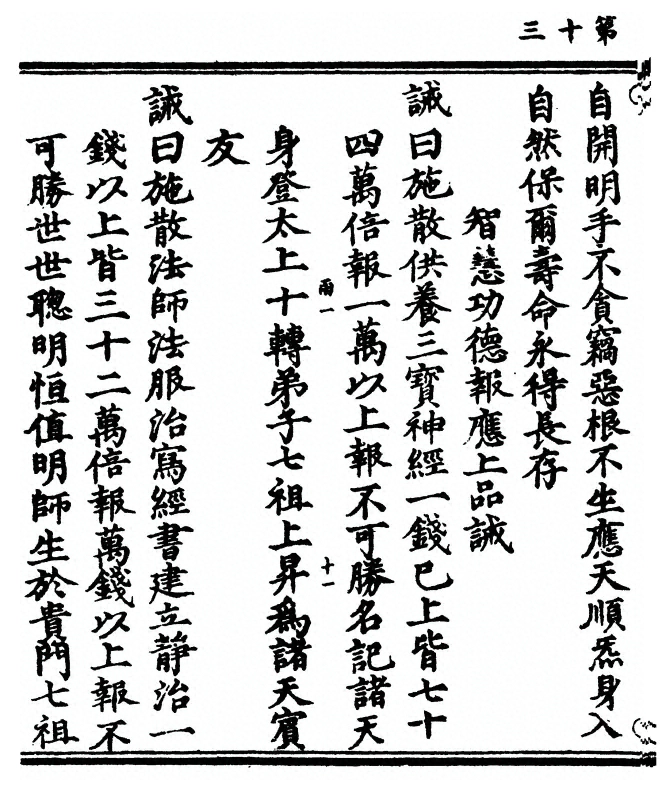 第十三
自開明手不貪竊惡根不生應天順炁身入
自然保爾壽命永得長存
智慧功德報應上品誡
誡曰施散供養三寶神經一錢巳上皆七十
四萬倍報一萬以上報不可勝名記諸天
雨一
十一
身登太上十轉弟子七祖上昇爲諸天賓
友
誡曰施散法師法服治寫經書建立静治一
錢以上皆三十二萬倍報萬錢以上報不
可勝世世聰明恒值明師生於貴門七祖